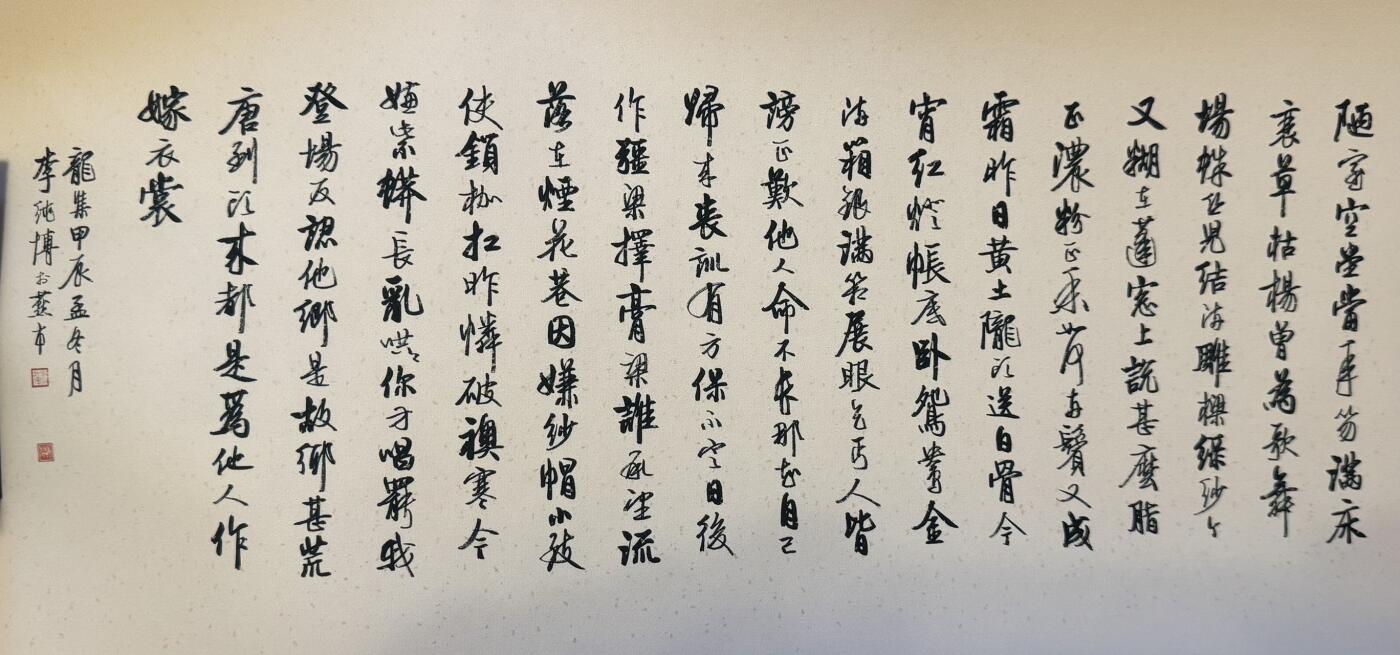 陋室空堂當年笏满床
衰草枯楊曾為歌舞
場蛛丝兒结满雕樑緑纱今
又糊在蓬窓上說甚麼脂
正濃粉正香如何兩鬢又成
霜昨日黄土隴頭送白骨今
宵红燈帳底卧鴛鴦金
满箱銀满箱展眼乞丐人皆
謗正歎他人命不長那知自己
歸来丧訓有方保不定日後
作疆梁擇膏梁誰承望流
落在煙花巷因嫌紗帽小致
使鎖枷扛昨憐破襖寒今
嫌紫蟒長亂哄哄你方唱罷我
登場反認他鄉是故鄉甚荒
唐到頭来都是為他人作
嫁衣裳
龍集甲辰孟冬月
李純博於燕市